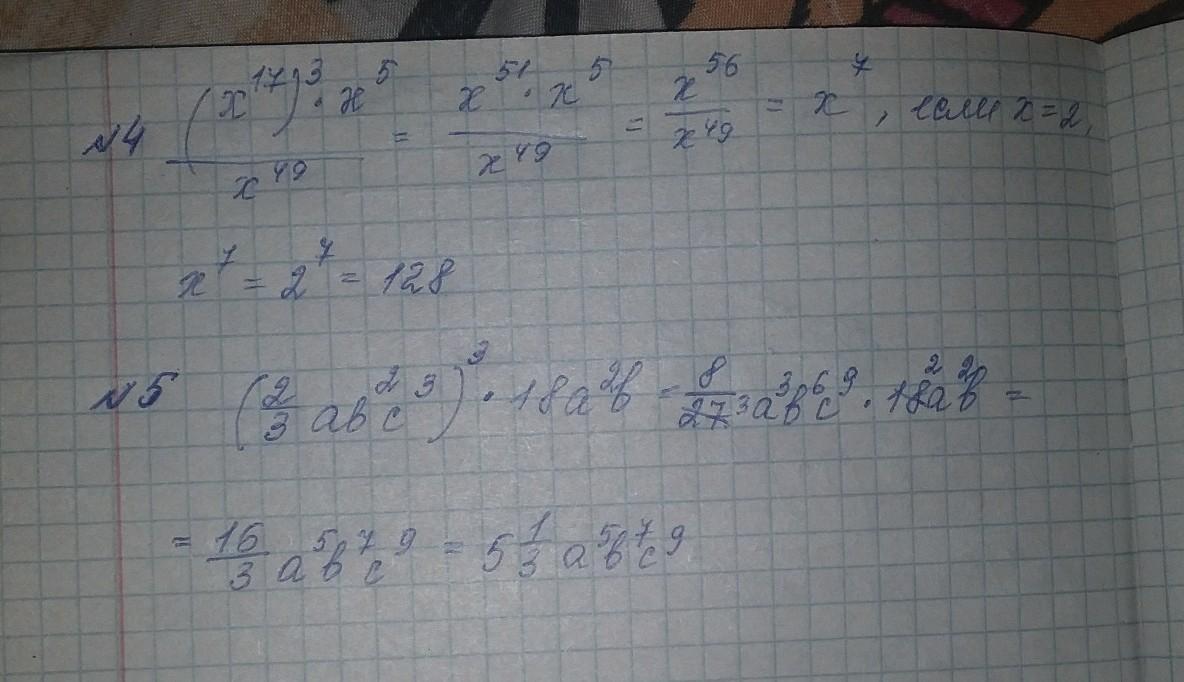 №4 (x¹⁷)³ · x⁵ / x⁴⁹ = x⁵¹ · x⁵ / x⁴⁹ = x⁵⁶ / x⁴⁹ = x⁷, если x=2,
x⁷ = 2⁷ = 128
№5 (2/3 ab²c³)³ · 18a²b = 8/27 3 a³b⁶c⁹ · 18a²b² =
= 16/3 a⁵b⁷c⁹ = 5 1/3 a⁵b⁷c⁹